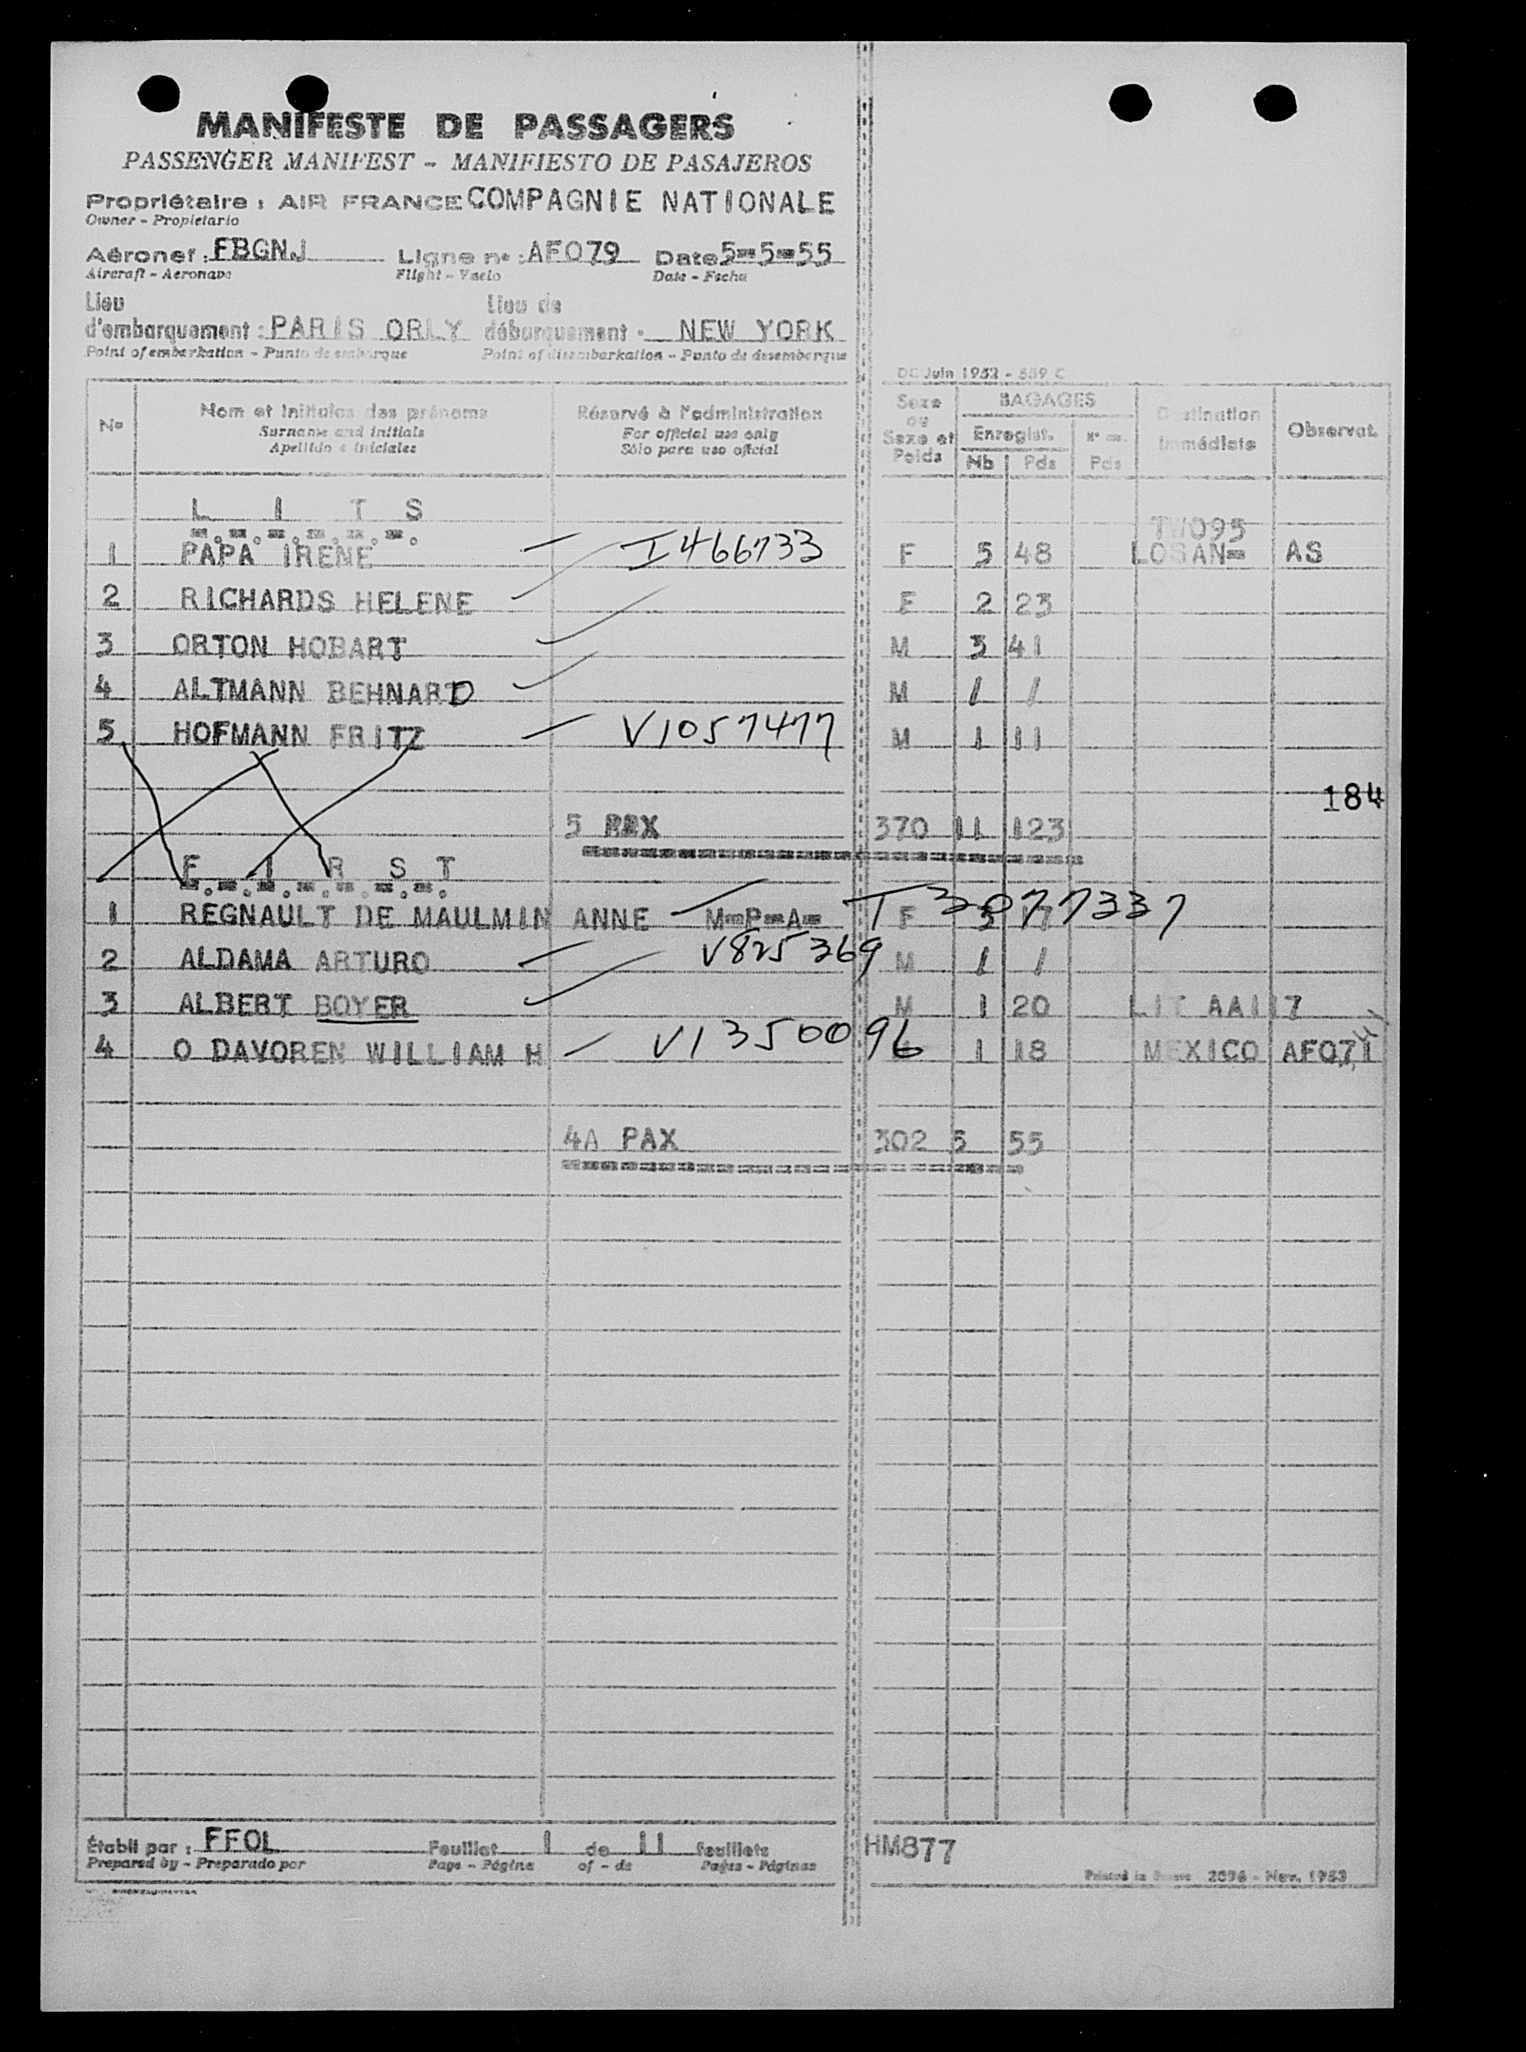 MANIFESTE DE PASSAGERS
PASSENGER MANIFEST - MANIFIESTO DE PASAJEROS
Propriétaire : AIR FRANCE COMPAGNIE NATIONALE
Owner - Propietario
Aéronef : FBGNJ Ligne n° : AF079 Date 5-5-55
Aircraft - Aeronave Flight - Vuelo Date - Fecha
Lieu d'embarquement : PARIS ORLY Lieu de débarquement : NEW YORK
Point of embarkation - Punto de embarque Point of disembarkation - Punto de desembarque
DC Juin 1953 - 559 C
N° Nom et initiales des prénoms Réservé à l'administration Sexe ou Sexe et Poids BAGAGES Destination immédiate Observat.
Surname and initials For official use only Enregist. N° en.
Apellido e iniciales Sólo para uso oficial Nb Pds Pds
L I T S
TW095
1 PAPA IRENE — I466733 F 5 48 LOSAN= AS
2 RICHARDS HELENE F 2 23
3 ORTON HOBART M 3 41
4 ALTMANN BEHNARD M / /
5 HOFMANN FRITZ — V1057477 M 1 11
184
5 PAX 370 11 123
F I R S T
1 REGNAULT DE MAULMIN ANNE M=P=A= T3077337 F 3 17
2 ALDAMA ARTURO — V825369 M / /
3 ALBERT BOYER M 1 20 LIT AA117
4 O DAVOREN WILLIAM H — V1350096 1 18 MEXICO AF071
4A PAX 302 5 55
Établi par : FFOL Feuillet 1 de 11 feuillets HM877
Prepared by - Preparado por Page - Página of - de Pages - Páginas
Printed in France 2096 - Nov. 1953